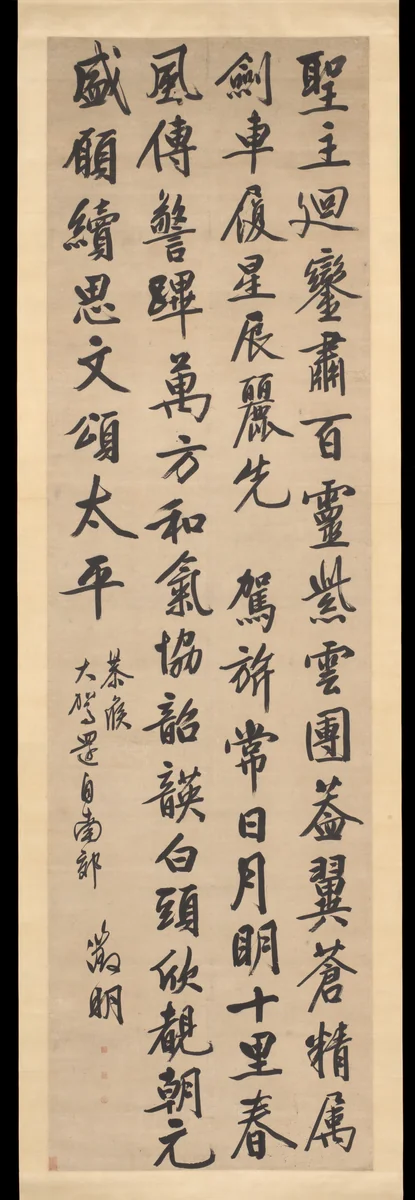 聖主廻鑾肅百靈紫雲團蓋翼蒼精属
劍車履星辰麗先 駕旂常日月明十里春
風傳警蹕萬方和氣協韶韺白頭欣覩朝元
盛願續思文頌太平
恭候
大駕還自南郊 徵明